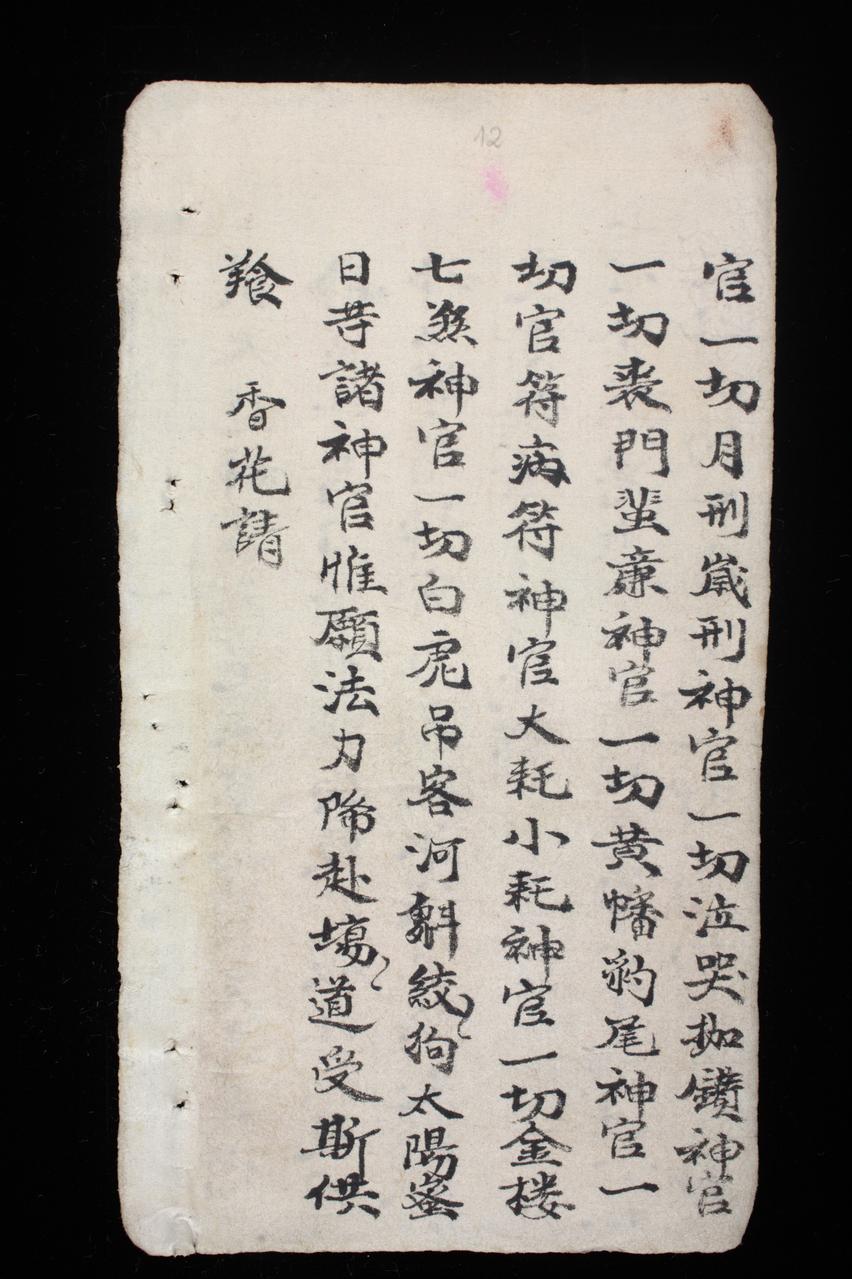 12
官一切月刑嵗刑神官一切泣哭枷鏁神官
一切丧門蜚㢘神官一切黄幡豹尾神官一
切官符病符神官大耗小耗神官一切金楼
七煞神官一切白虎吊客河魁絞狗太陽蜜
日䒭諸神官惟願法力降赴塲道受斯供
飡 香花請